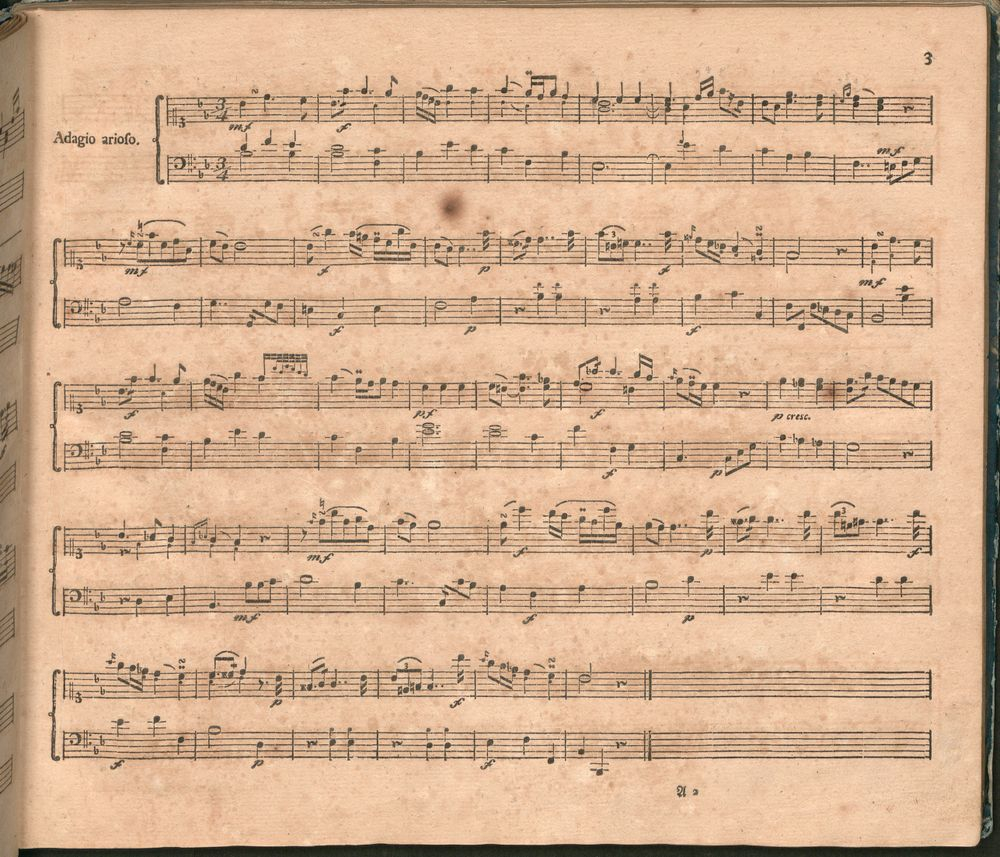 3
Adagio arioso.
mf f
mf
mf f p f mf
f p f
f pf f p cresc.
f p
mf f p f
mf f p
p f
f p f
A 2